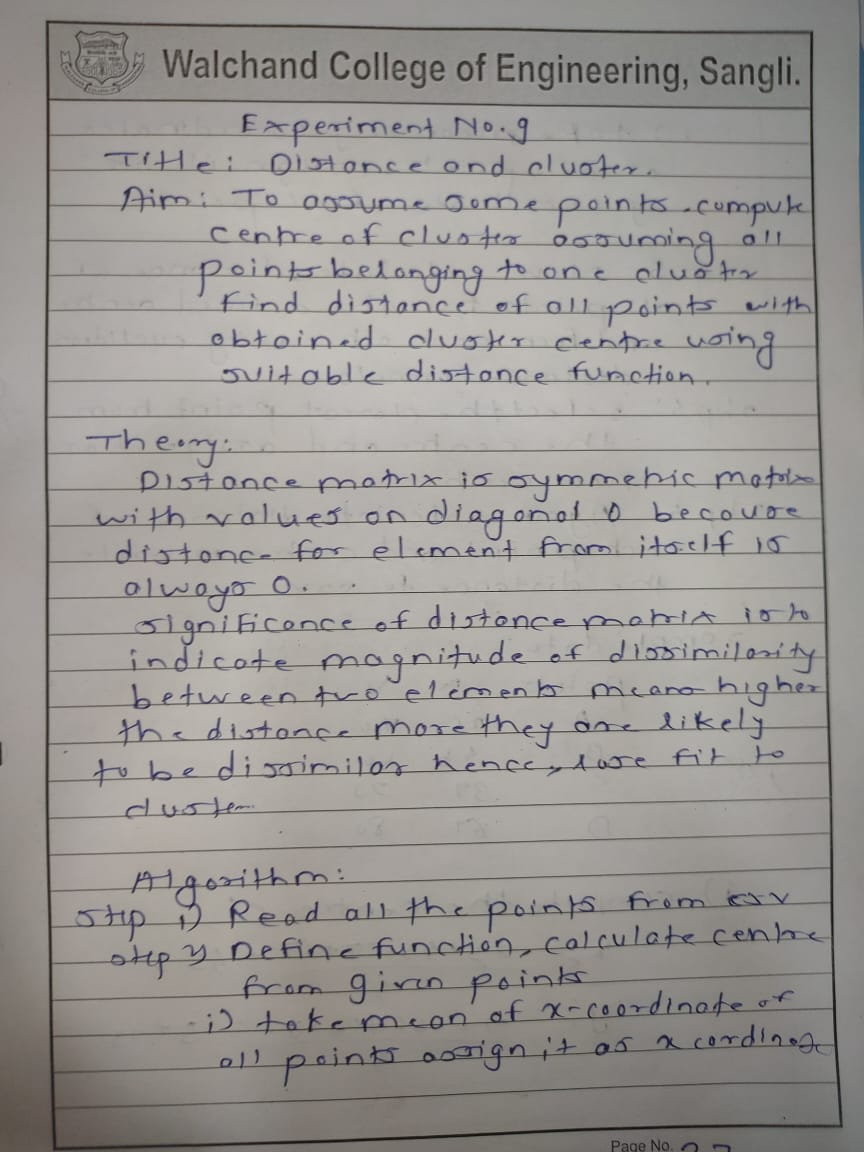 Walchand College of Engineering, Sangli.
Experiment No. 9
Title: Distance and cluster.
Aim: To assume some points. compute
centre of cluster assuming all
points belonging to one cluster
find distance of all points with
obtained cluster centre using
suitable distance function.
Theory:
Distance matrix is symmetric matrix
with values on diagonal 0 because
distance for element from itself is
always 0.
significance of distance matrix is to
indicate magnitude of dissimilarity
between two elements means higher
the distance more they are likely
to be dissimilar hence, fit to
cluster
Algorithm:
Step 1) Read all the points from csv
step 2) Define function, calculate centre
from given points
i) take mean of x-coordinate of
all points assign it as x cordinate
Page No. 27